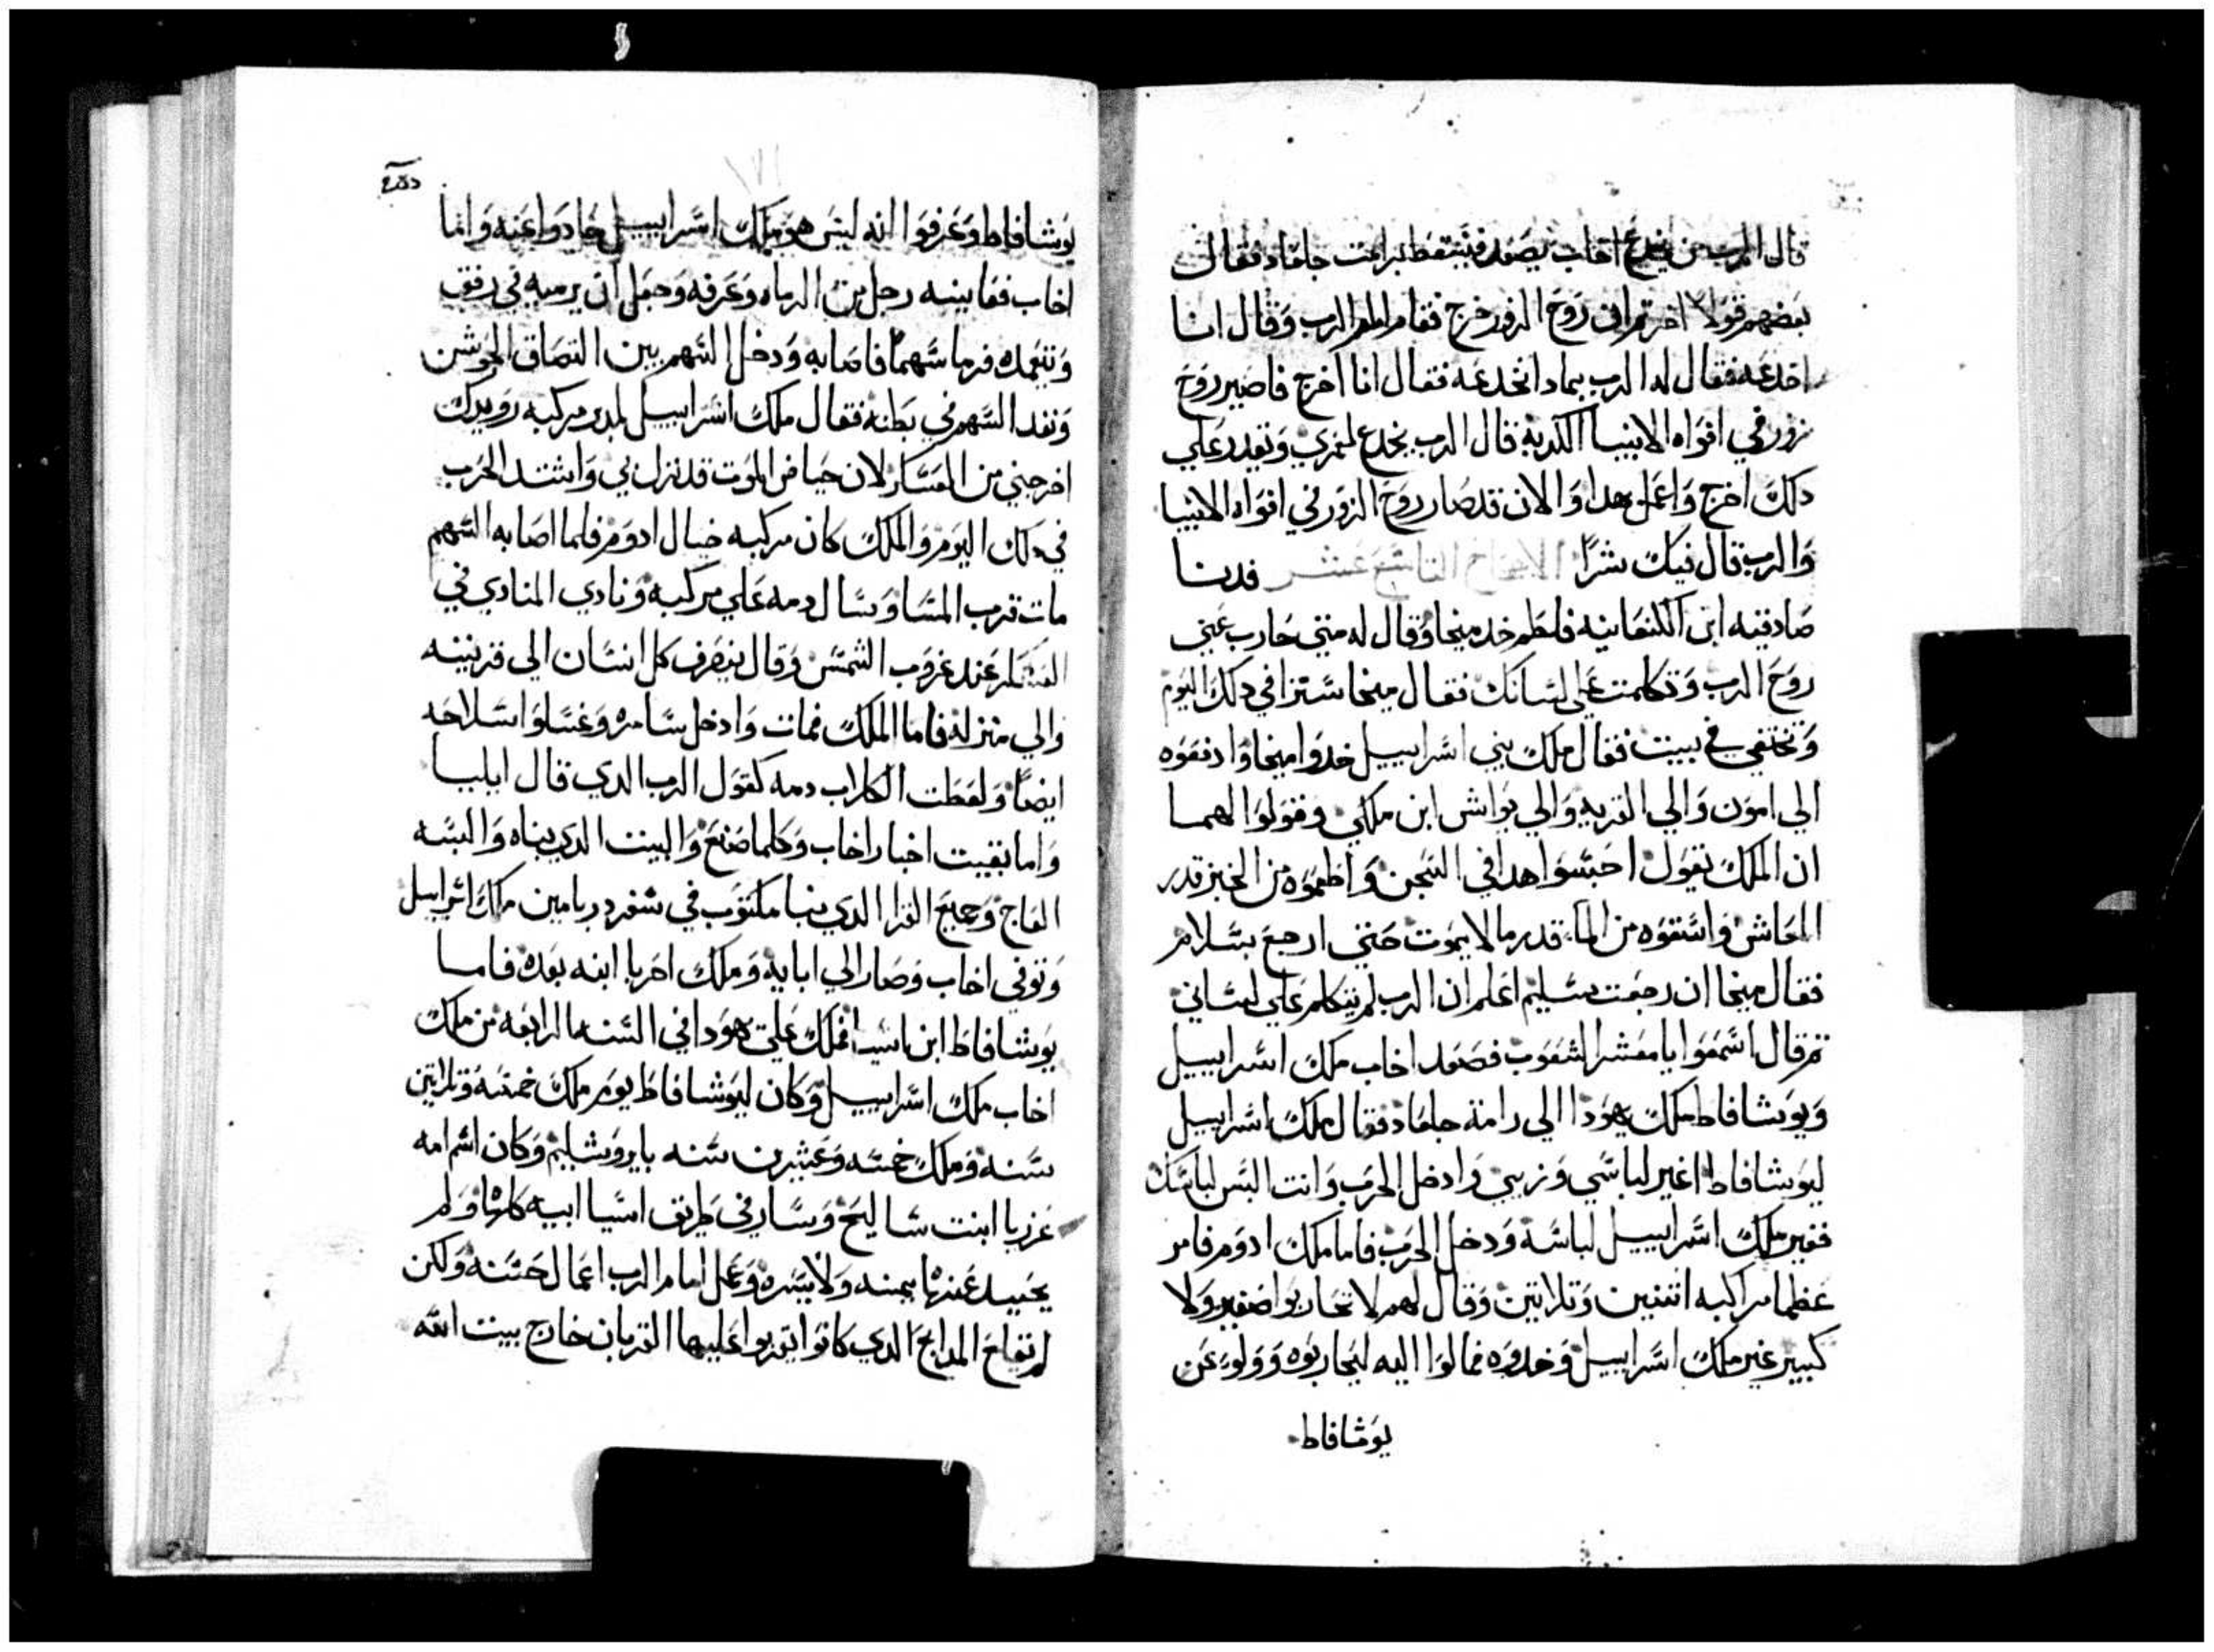 قال الرب من يخدع اخاب يصعد فيسقط برامت جلعاد فقال
بعضهم قولا اخر ثم ان روح الزور خرج فقام امام الرب وقال انا
اخدعه فقال له الرب بمادا تخدعه فقال انا اخرج فاصير روح
زور في افواه الانبيا الكدبه قال الرب تخدع لعمري وتقدر علي
دلك اخرج واعمل هدا والان قد صار روح الزور في افواه الانبيا
والرب قال فيك شرا الاصحاح التاسع عشر فدنا
صادقيه ابن الكنعانيه فلطم خد ميخا وقال له متي حارب عني
روح الرب وتكلمت علي لسانك فقال ميخا ستراني دلك اليوم
وتختفي في بيت فقال ملك بني اسراييل خدوا ميخا وادفعوه
الي امون والي القريه والي يواش ابن ملكي وقولوا لهما
ان الملك يقول احبسوا هدا في السجن واطعموه من الخبز قدر
المعاش واسقوه من الما قدر ما لا يموت حتي ارجع بسلام
فقال ميخا ان رجعت بسليم اعلم ان الرب لم يتكلم علي لساني
ثم قال اسمعوا يا معشر الشعوب فصعد اخاب ملك اسراييل
ويوشافاط ملك يهودا الي رامة جلعاد فقال ملك اسراييل
ليوشافاط اغير لباسي وزيي وادخل الحرب وانت البس لباسك
فغير ملك اسراييل لباسه ودخل الحرب فاما ملك ادوم فامر
عظما مراكبه اتنين وتلاتين وقال لهم لا تحاربوا صغير ولا
كبير غير ملك اسراييل وحدوه فمالوا اليه ليحاربوه وولو عن
يوشافاط
يوشافاط وعرفوا انه ليس هو ملك اسراييل حادوا عنه واما
اخاب فعاينه رجل من الرماه وعرفه وجعل ان يرميه في رفق
وتعمده فرما سهما فاصابه ودخل السهم بين التصاق الجوشن
ونفد السهم في بطنه فقال ملك اسراييل لمدبر مركبه رويدك
اخرجني من العسكر لان حياض الموت قد نزل بي واشتد الحرب
في دلك اليوم والملك كان مركبه حيال ادوم فلما اصابه السهم
مات قرب المسا وسال دمه علي مركبه ونادي المنادي في
العسكر عند غروب الشمس وقال ينصرف كل انسان الي قريته
والي منزله فاما الملك فمات وادخل سامره وغسلوا سلاحه
ايضا ولعطت الكلاب دمه كقول الرب الدي قال ايليا
واما بقيت اخبار اخاب وكلما صنع والبيت الدي بناه والبسه
العاج وجميع القرا الدي بنا مكتوب في سفر دبريامين ملك اسراييل
وتوفي اخاب وصار الي ابايه وملك احزيا ابنه بعده فاما
يوشافاط ابن اسا فملك علي يهودا في السنه الرابعه من ملك
اخاب ملك اسراييل وكان ليوشافاط يوم ملك خمسه وتلاتين
سنه وملك خمسه وعشرين سنه بايروشليم وكان اسم امه
عزريا ابنت شاليح وسار في طريق اسيا ابيه كلها ولم
يحيد عنها يمنه ولا يسره وعمل امام الرب اعمال حسنه ولكن
لم تقلع المدابح الدي كانوا يقربوا عليها القربان خارج بيت الله